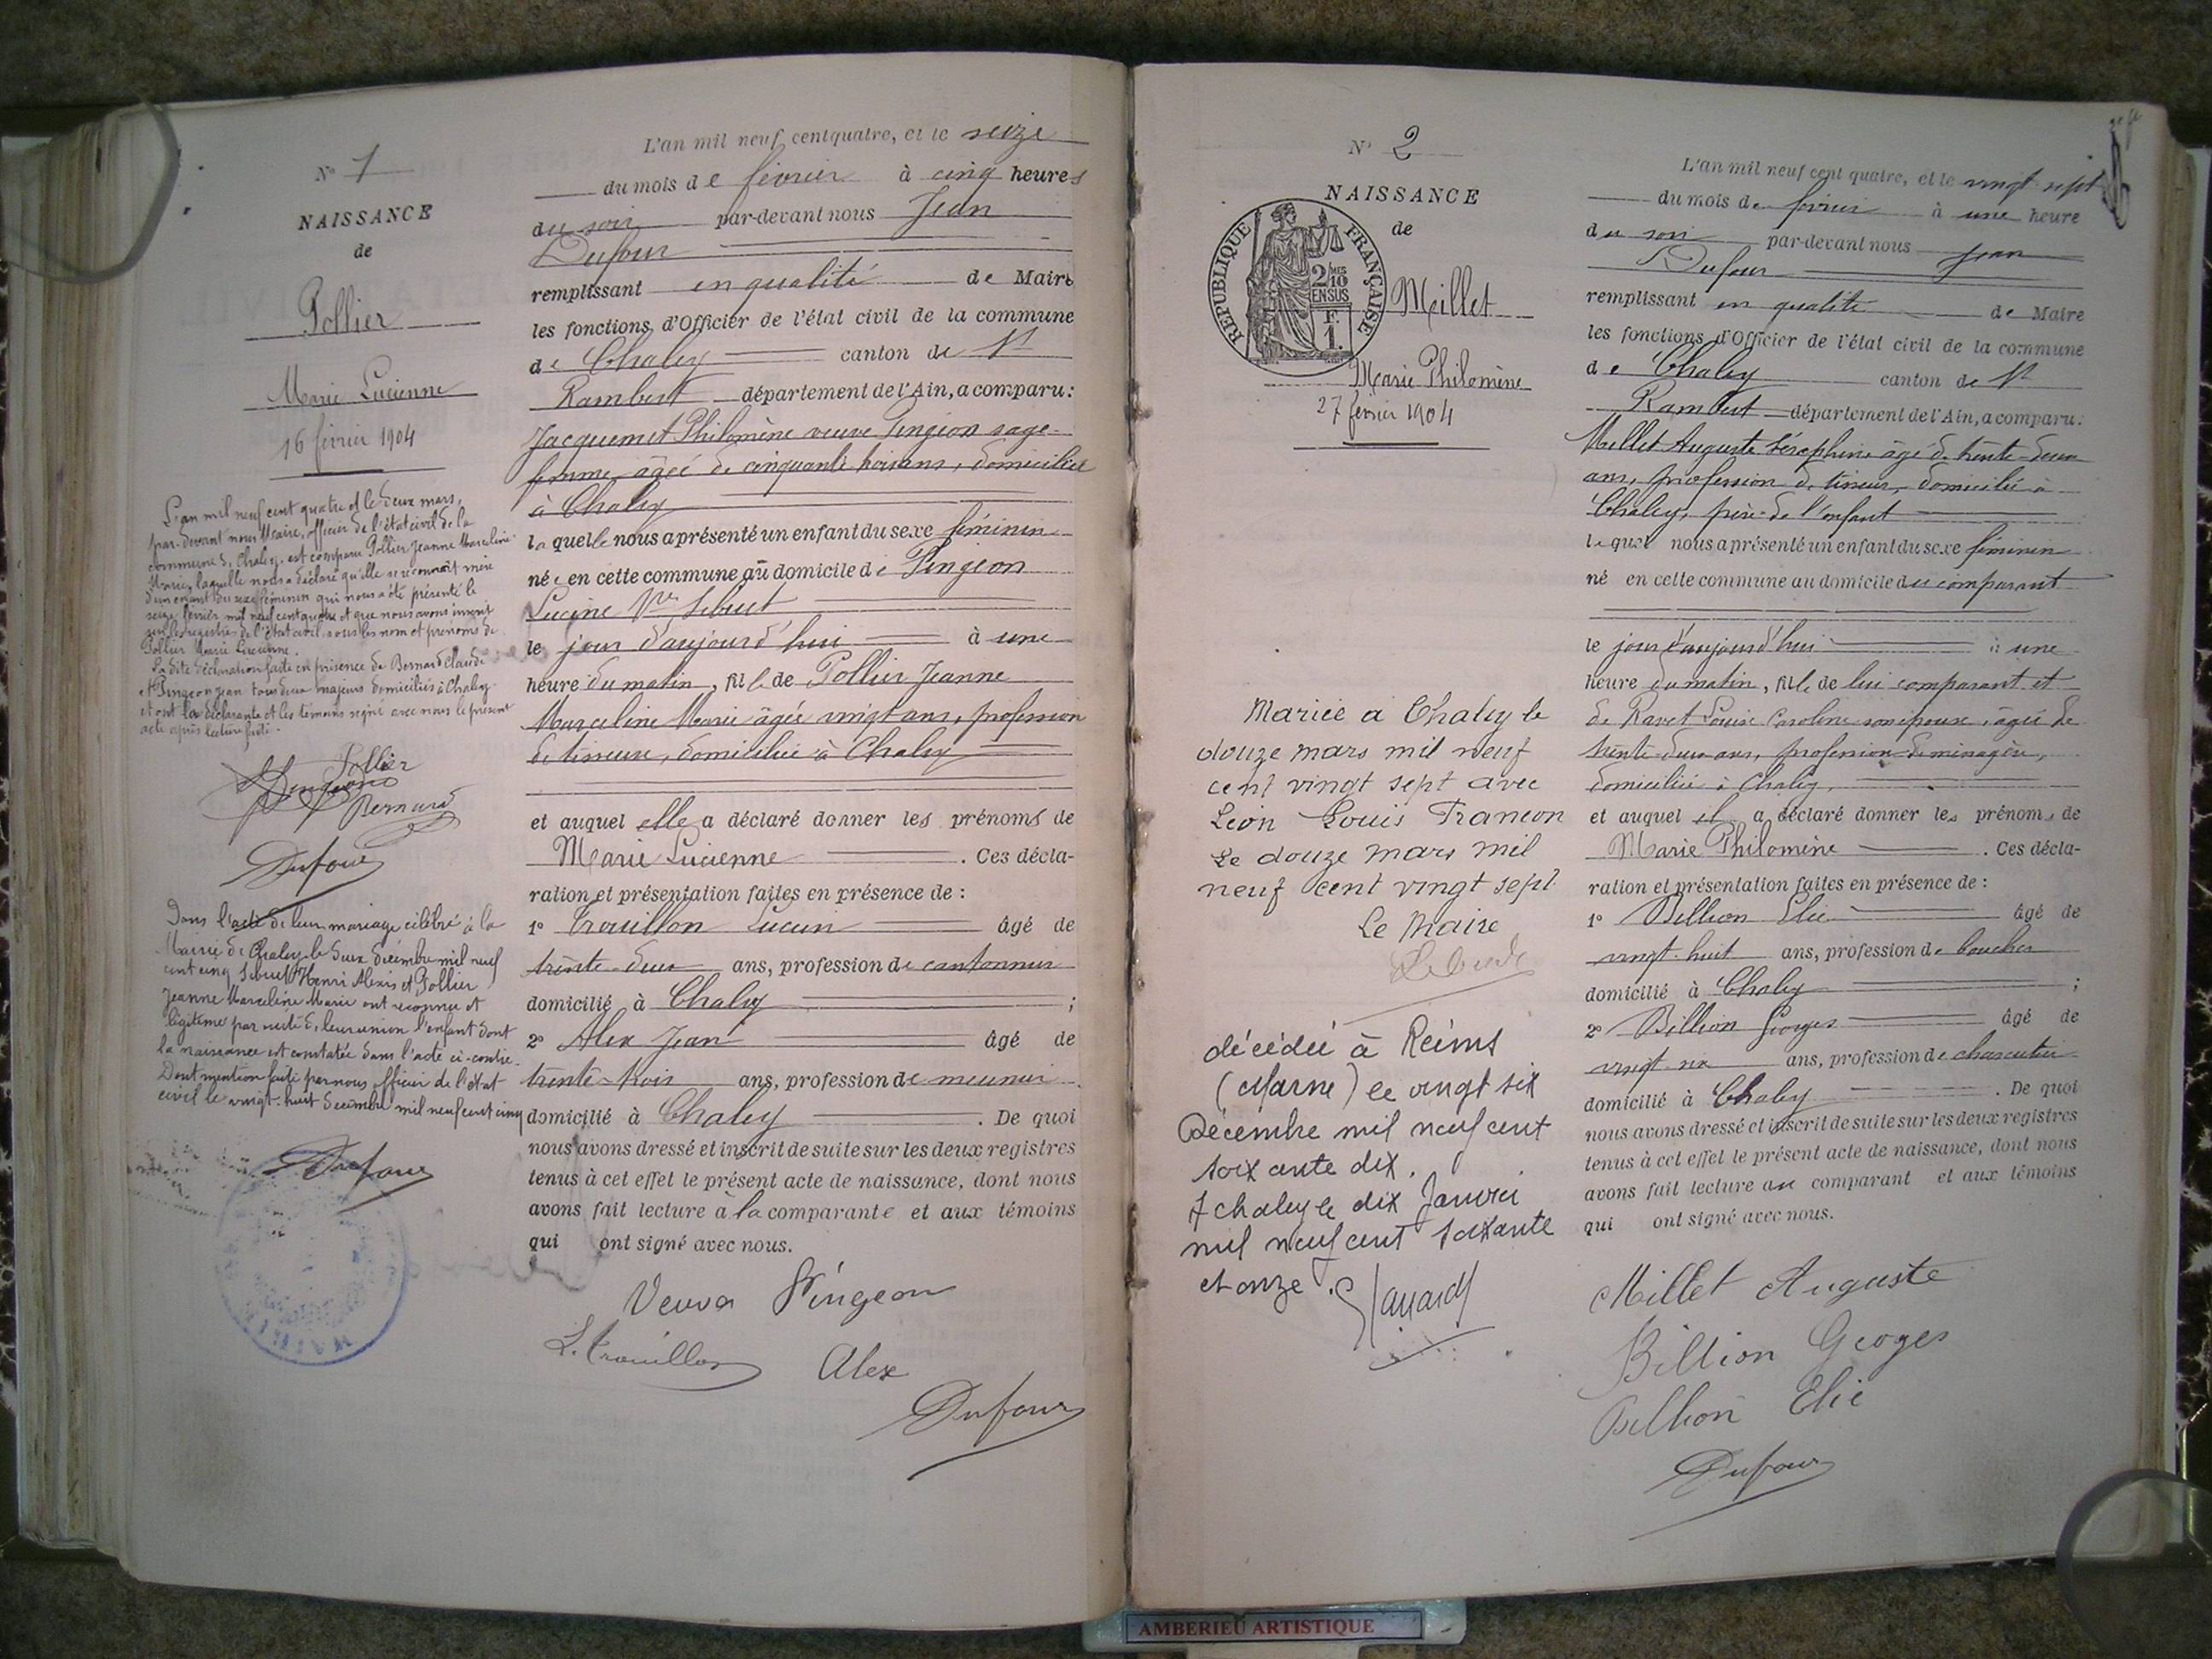 N° 1
NAISSANCE
de
Pollier
Marie Lucienne
16 février 1904
L'an mil neuf cent quatre et le deux mars,
par-devant nous Maire, officier de l'état civil de la
commune de Chaley, est comparue Pollier Jeanne Marceline
Marie, laquelle nous a déclaré qu'elle se reconnaît mère
d'un enfant du sexe féminin qui nous a été présenté le
seize février mil neuf cent quatre et que nous avons inscrit
sur les registres de l'état civil sous les nom et prénoms de
Pollier Marie Lucienne.
La dite déclaration faite en présence de Bernard Claude
et Pingeon Jean tous deux majeurs domiciliés à Chaley
et ont la déclarante et les témoins signé avec nous le présent
acte après lecture faite.
Pollier
Pingeon
Bernard
Dufour
Dans l'acte de leur mariage célébré à la
Mairie de Chaley le deux décembre mil neuf
cent cinq Sibuet Henri Alexis et Pollier
Jeanne Marceline Marie ont reconnu et
légitimé par suite de leur union l'enfant dont
la naissance est constatée dans l'acte ci-contre.
Dont mention faite par nous officier de l'état
civil le vingt-huit décembre mil neuf cent cinq
Dufour
MAIRIE
L'an mil neuf cent quatre, et le seize
du mois de février à cinq heures
du soir par-devant nous Jean
Dufour
remplissant en qualité de Maire
les fonctions d'Officier de l'état civil de la commune
de Chaley canton de St
Rambert département de l'Ain, a comparu:
Jacquemet Philomène veuve Pingeon sage-
femme, âgée de cinquante trois ans, domiciliée
à Chaley
la quelle nous a présenté un enfant du sexe féminin
né e en cette commune au domicile de Pingeon
Lucine Vve Sibuet
le jour d'aujourd'hui à une
heure du matin, fille de Pollier Jeanne
Marceline Marie âgée vingt ans, profession
de tisseuse, domiciliée à Chaley
et auquel elle a déclaré donner les prénoms de
Marie Lucienne. Ces décla-
ration et présentation faites en présence de:
1° Trouillon Lucien âgé de
trente-deux ans, profession de cantonnier
domicilié à Chaley;
2° Alex Jean âgé de
trente-trois ans, profession de meunier
domicilié à Chaley. De quoi
nous avons dressé et inscrit de suite sur les deux registres
tenus à cet effet le présent acte de naissance, dont nous
avons fait lecture à la comparante et aux témoins
qui ont signé avec nous.
Veuve Pingeon
L. Trouillon Alex
Dufour
N° 2
NAISSANCE
de
REPUBLIQUE FRANÇAISE
2/10MES
EN SUS
F.
1.
Millet
Marie Philomène
27 février 1904
Mariée a Chaley le
douze mars mil neuf
cent vingt sept avec
Léon Louis Francon
Le douze mars mil
neuf cent vingt sept.
Le Maire
décédée à Reims
(Marne) le vingt six
Décembre mil neuf cent
soixante dix.
A chaley le dix Janvier
mil neuf cent soixante
et onze.
L'an mil neuf cent quatre, et le vingt-sept
du mois de février à une heure
du soir par-devant nous Jean
Dufour
remplissant en qualité de Maire
les fonctions d'Officier de l'état civil de la commune
de Chaley canton de St
Rambert département de l'Ain, a comparu:
Millet Auguste Séraphin, âgé de trente-deux
ans, profession de tisseur, domicilié à
Chaley, père de l'enfant
le quel nous a présenté un enfant du sexe féminin
né en cette commune au domicile du comparant
le jour d'aujourd'hui à une
heure du matin, fille de lui comparant et
de Ravet Louise Caroline son épouse, âgée de
trente-deux ans, profession de ménagère,
domiciliée à Chaley,
et auquel il a déclaré donner les prénoms de
Marie Philomène. Ces décla-
ration et présentation faites en présence de:
1° Billion Elie âgé de
vingt-huit ans, profession de boucher
domicilié à Chaley;
2° Billion Georges âgé de
vingt-six ans, profession de charcutier
domicilié à Chaley. De quoi
nous avons dressé et inscrit de suite sur les deux registres
tenus à cet effet le présent acte de naissance, dont nous
avons fait lecture au comparant et aux témoins
qui ont signé avec nous.
Millet Auguste
Billion Geoges
Billion Elie
Dufour
AMBERIEU ARTISTIQUE